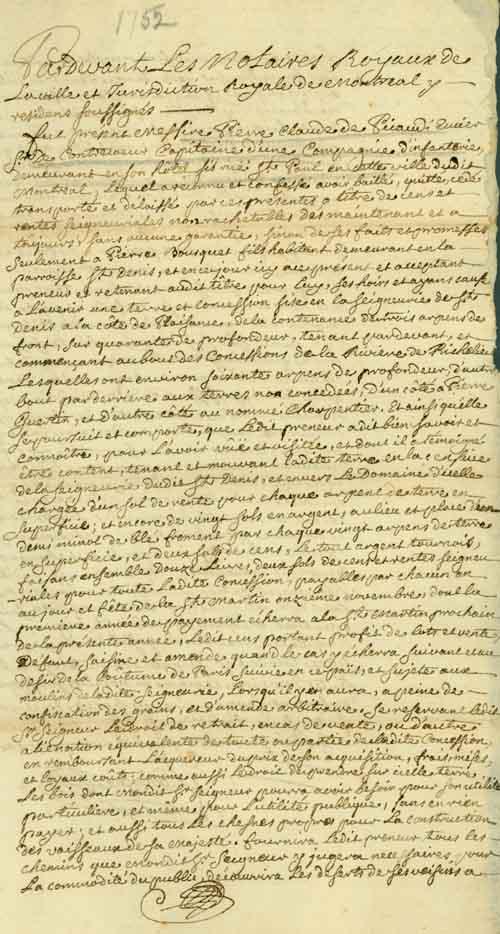 1752
Pardevant Les Notaires Royaux de
La ville et Jurisdiction Royale de Montreal y
residens soussignés
fut present Messire Pierre Claude de Pécaudi Ecuier
Sr. de Contrecoeur Capitaine d'une Compagnie d'infanterie,
demeurant en son hôtel sis rüe St. Paul en cette ville dudit
Montreal, Lequel a reconnu et confessé avoir baillé, quitté, cedé
transporté et delaissé par ces presentes a titre de cens et
rentes seigneuriales non rachetables dés maintenant et a
toujours, sans aucune garantie, sinon de ses faits et promesses
seulement a Pierre Bousquet fils habitant demeurant en la
parroisse St. Denis, et en ce jour icy a ce present et acceptant
preneur et retenant audit titre pour Luy, ses hoirs et ayans cause
a L'avenir une terre et Concession sise en la seigneurie de St.
Denis a la côte de Plaisance, de la contenance de trois arpens de
front, sur quarante de profondeur, tenant pardevant, et
commençant au bout des Concessions de la Riviere de Richelieu
Lesquelles ont environ soixante arpens de profondeur, d'autre
bout par derriere aux terres non concedées, d'un côté a Pierre
Guertin, et d'autre côté au nommé Charpentier. Et ainsi qu'elle
se poursuit et comporte, que Ledit preneur a dit bien savoir et
connoître, pour L'avoir vûë et visitée, et dont il a temoigné
être content, tenant et mouvant Ladite terre en La censive
de la seigneurie dudit St. Denis, et envers Le Domaine d'icelle
chargée d'un sol de rente pour chaque arpent de terre en
superficie; et encore de vingt sols en argent, au lieu et place d'un
demi minot de blé froment par chaque vingt arpens de terre
en superficie, et deux sols de cens, Le tout argent tournois,
faisans ensemble douze Livres, deux sols de cens et rentes seigneu-
riales pour toute Ladite Concession, payables par chacun an
au jour et fête de la St. Martin onzième novembre, dont la
premiere année de payement echerra a la St. Martin prochain
de la presente année. Ledit cens portant profit de lots et vente
defaut, saisine et amende quand le cas y echerra suivant et au
desir de la Coutume de Paris suivie en ce païs, et sujete aux
moulins de ladite seigneurie, Lorsqu'il y en aura, a peine de
confiscation des grains, et d'amende arbitraire. Se reservant Ledit
Sr. Seigneur Le droit de retrait, en cas de vente, ou d'autre
alienation equivalente de toute ou partie de Ladite Concession,
en remboursant L'acquereur du prix de son acquisition, frais, mises,
et loyaux coûts: comme aussi Le droit de prendre sur icelle terre
Les bois dont mondit Sr. Seigneur pourra avoir besoin pour son utilité
particuliere, et même pour L'utilité publique, sans en rien
payer; et aussi tous Les chesnes propres pour La construction
des vaisseaux de sa majesté. Fournira Ledit preneur tous les
chemins que mondit Sr. Seigneur y jugera necessaires, pour
La commodité du public, decouvrira Les deserts de ses voisins a